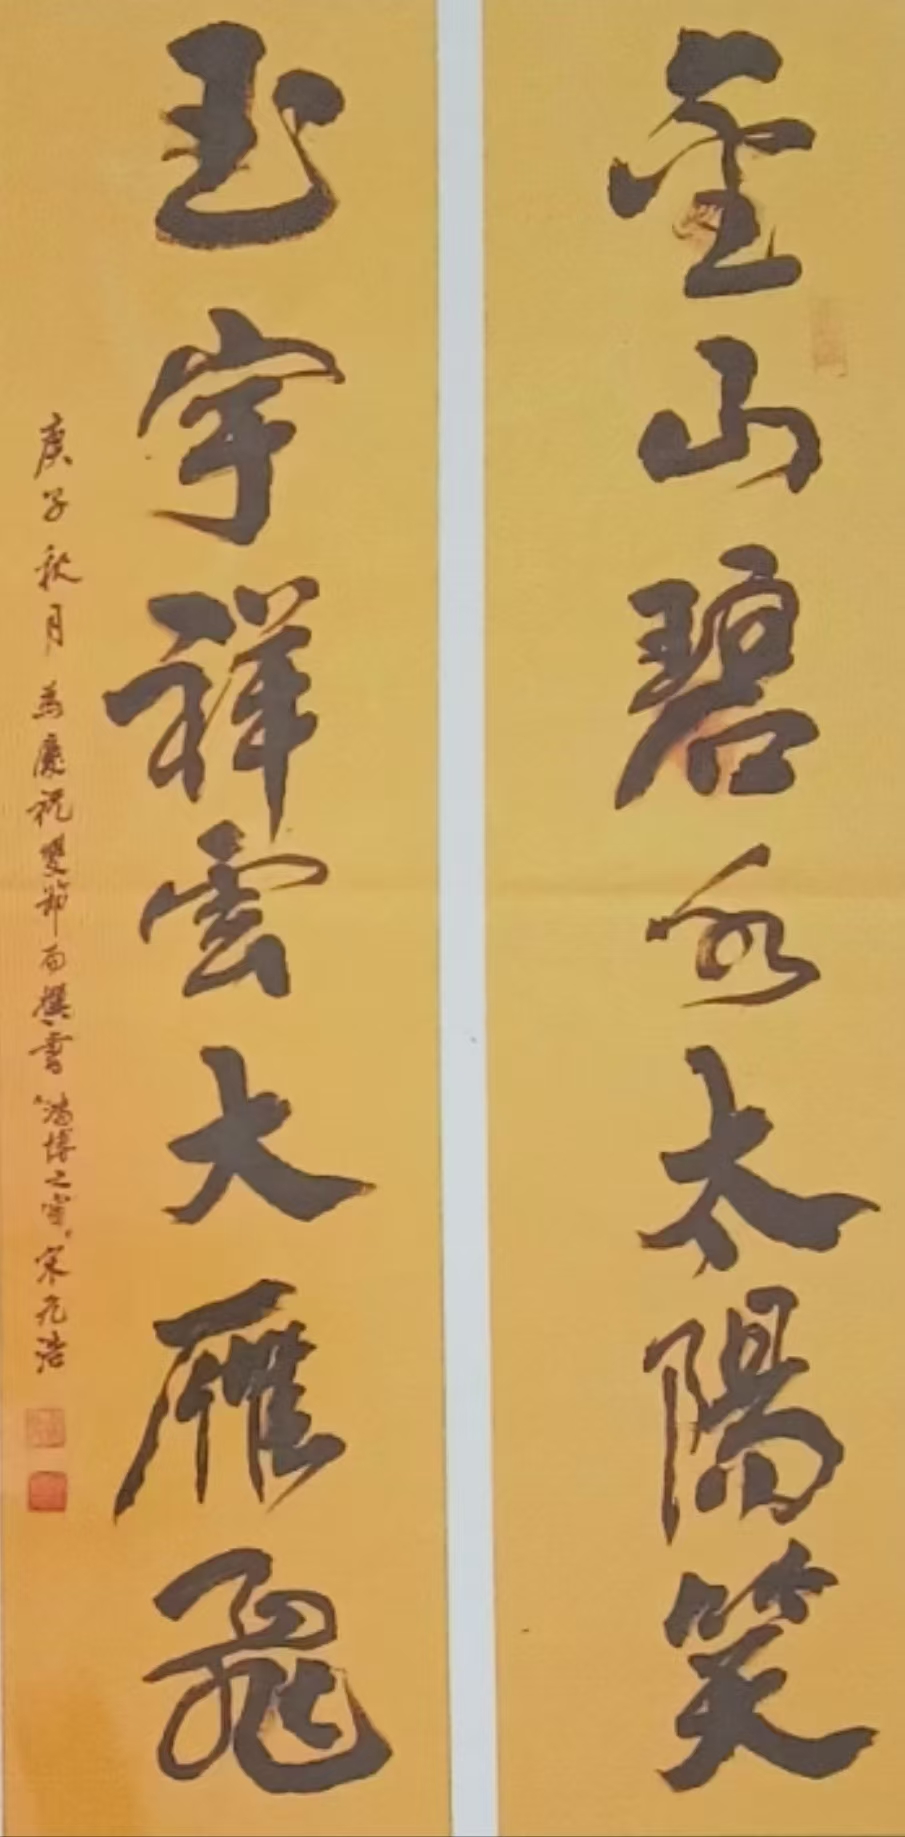 金山碧水太陽笑
玉宇祥雲大雁飛
庚子秋月為慶祝雙節而撰書"鴻博之室"宋元浩